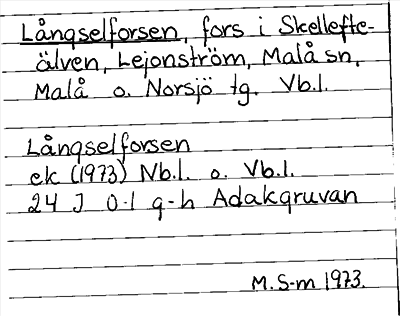 Långselforsen, fors i Skellefte-
älven, Lejonström, Malå sn,
Malå o. Norsjö tg. Vb.l.
Långselforsen
ek (1973) Nb.l. o. Vb.l.
24 J 0-1 g-h Adakgruvan
M.S-m 1973.